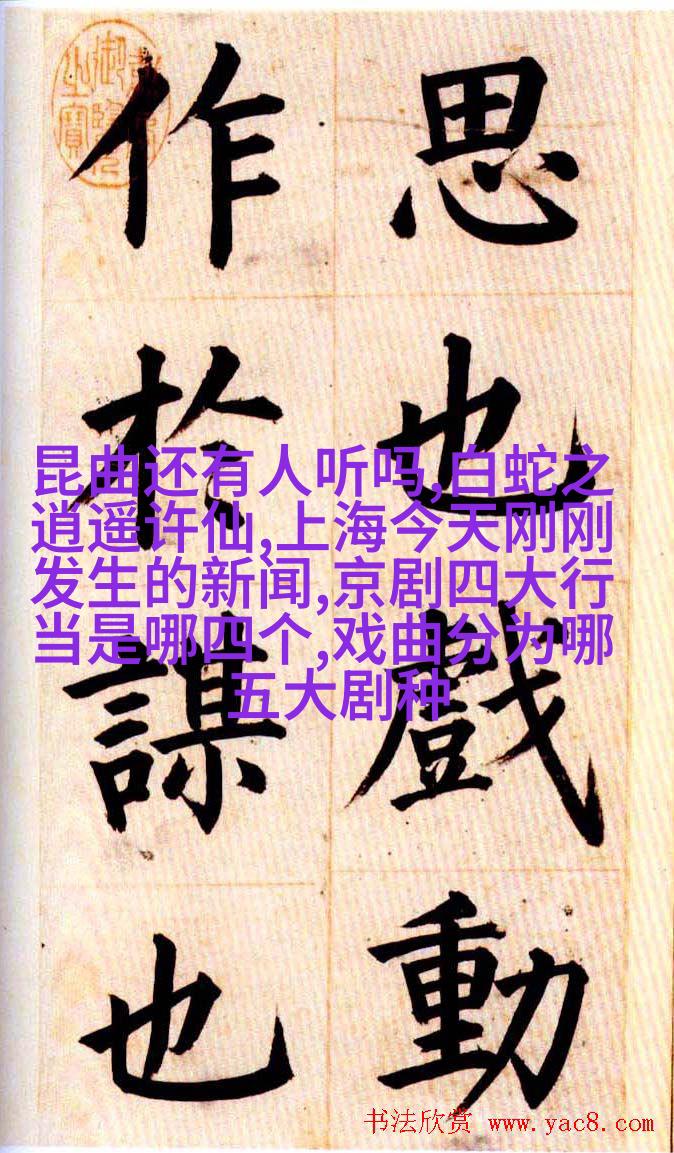 思也戲動
作於謀也
昆曲还有人听吗,白蛇之
逍遥许仙,上海今天刚刚
发生的新闻,京剧四大行
当是哪四个,戏曲分为哪
五大剧种
书法欣赏 www.yac8.com